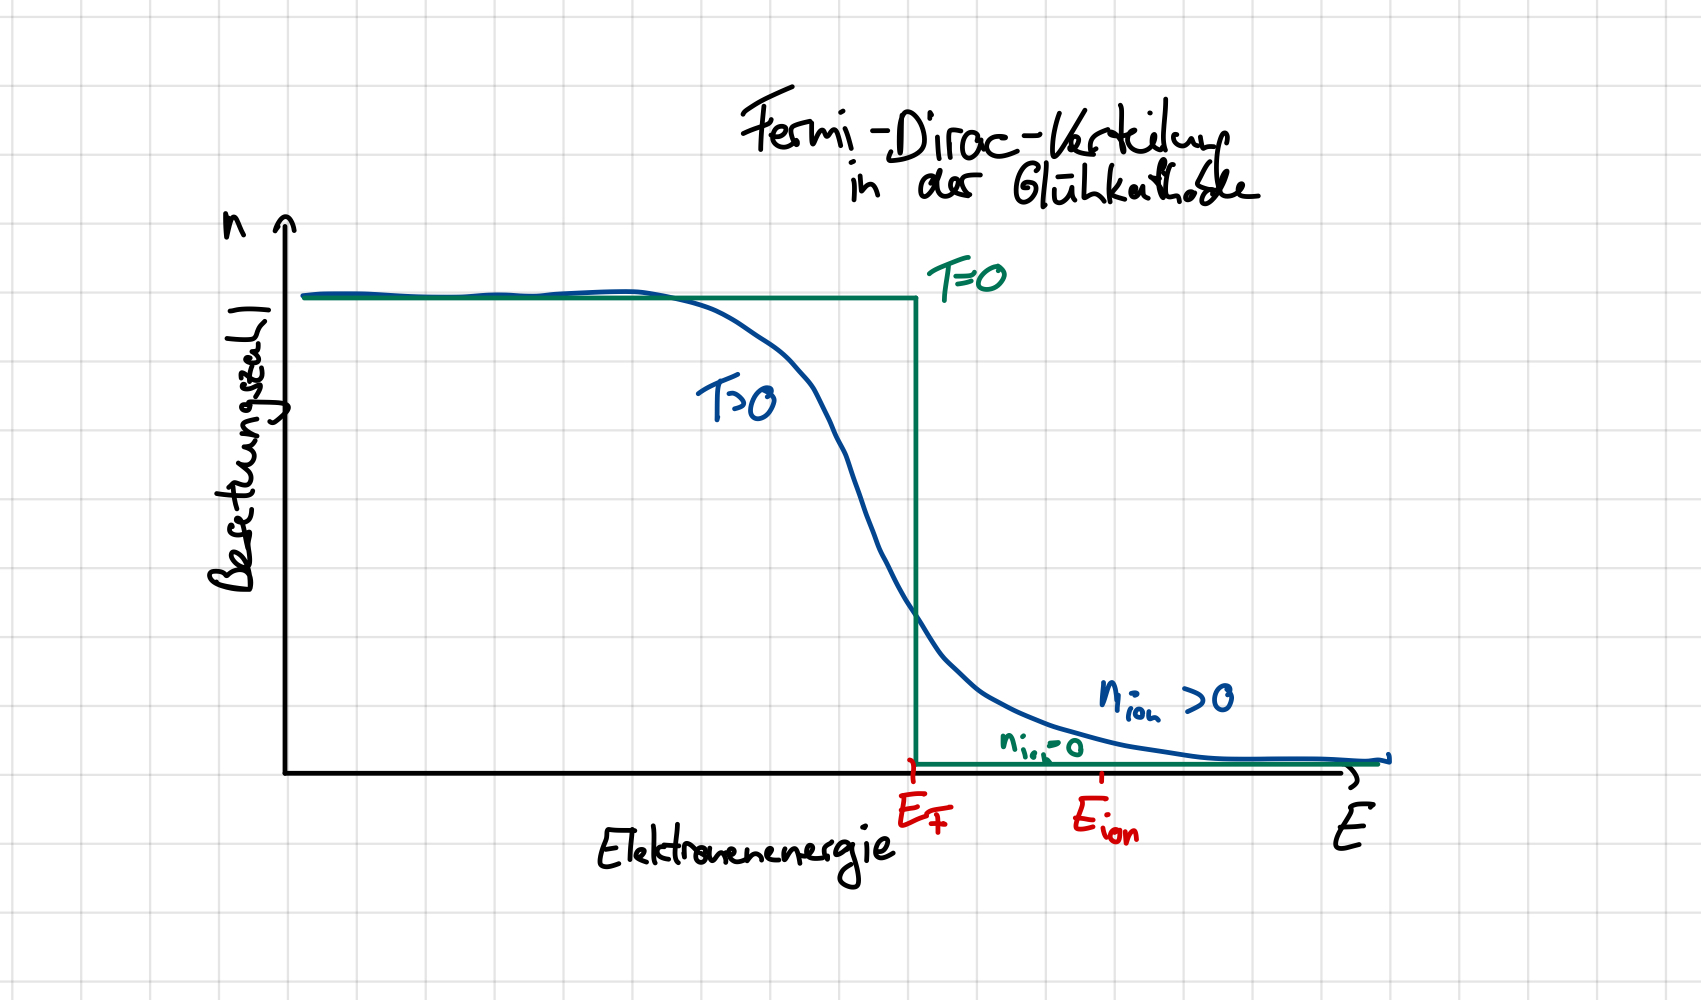 Fermi-Dirac-Verteilung
in der Glühkathode
n
T=0
Besetzungszahl
T>0
n_ion >0
n_ion=0
E_F
E_ion
E
Elektronenenergie